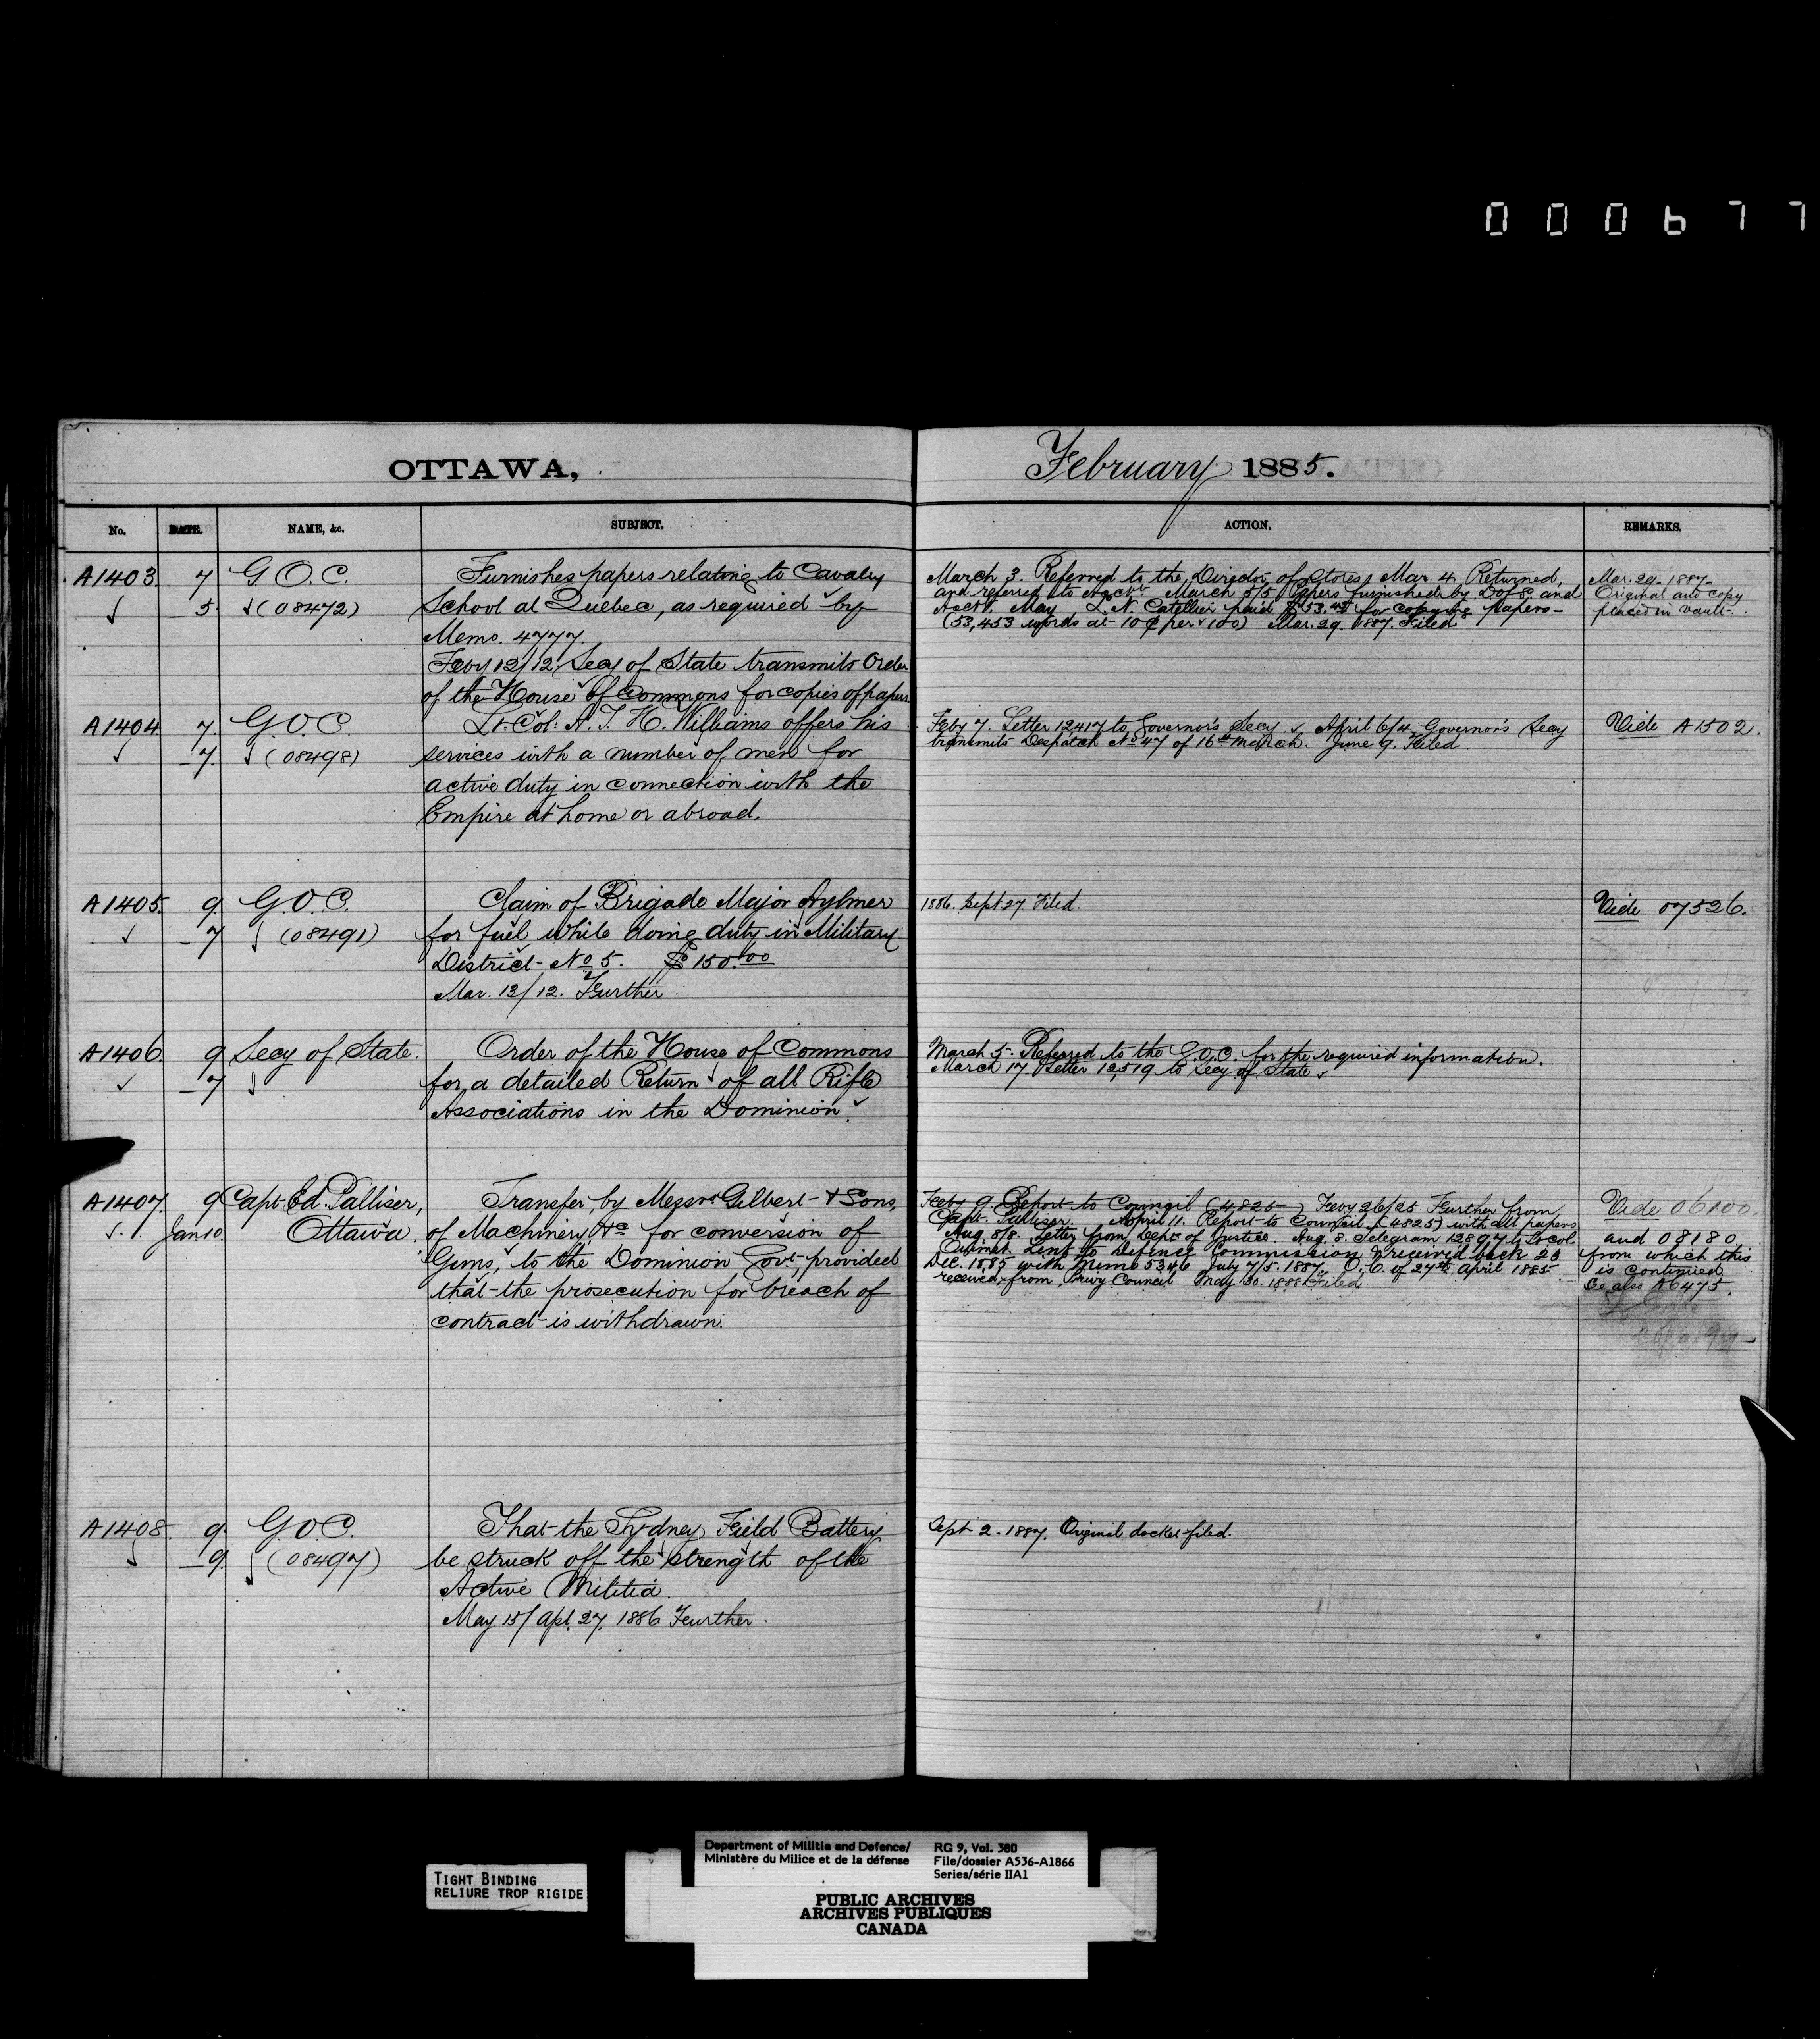 000677
OTTAWA,
February 1885.
No.
DATE.
NAME, &c.
SUBJECT.
ACTION.
REMARKS.
A1403. 7 G.O.C. Furnishes papers relating to Cavalry
5. (08472) School at Quebec, as required by
Memo. 4777.
Feby 12/12 Secy of State transmits Order
of the House of Commons for copies of papers
March 3. Referred to the Director of Stores, Mar. 4 Returned,
and referred to Acct. March 5/5 Papers furnished by D. of S. and
Acct. May L. N. Catellier paid $53.45 for copying papers-
(53,453 words at 10¢ per 100) Mar. 29. 1887. Filed
Mar. 29-1887-
Original and copy
placed in vault.
A1404 7. G.O.C. Lt. Col: A. T. H. Williams offers his
7. (08498) services with a number of men for
active duty in connection with the
Empire at home or abroad.
Feby 7. Letter 12417 to Governor's Secy April 6/4 Governor's Secy
transmits Despatch No 47 of 16th March. June 9. Filed.
Vide A1502.
A1405. 9. G.O.C. Claim of Brigade Major Aylmer
7. (08491) for fuel while doing duty in Military
District No 5. $150.00
Mar. 13/12. Further.
1886. Sept 27 Filed.
Vide 07526.
A1406. 9 Secy of State. Order of the House of Commons
7 for a detailed Return of all Rifle
Associations in the Dominion.
March 5. Referred to the G.O.C. for the required information.
March 17. Letter 12,519 to Secy of State
A1407. 9 Capt. Ed. Palliser, Transfer, by Messrs Gilbert & Sons,
Jan 10. Ottawa. of Machinery, &c for conversion of
Guns, to the Dominion Govt, provided
that the prosecution for breach of
contract is withdrawn.
Feby 9 Report to Council (4825) Feby 26/25 Further from
Capt. Palliser. April 11. Report to Council (4825) with all papers
Aug 8/8. Letter from Dept of Justice. Aug. 8. Telegram 12897 to Lt Col
Ouimet Sent to Defence Commission & received back 23
Dec. 1885 with Memo 5346 July 7/5. 1887 O.C. of 27th April 1885
received from Privy Council May 30. 1888 Filed
Vide 06100.
and 08180
from which this
is continued
See also A6475.
A1408. 9. G.O.C. That the Sydney Field Battery
9. (08497) be struck off the strength of the
Active Militia.
May 15/Apl. 27. 1886 Further.
Sept 2-1887. Original docket filed.
Department of Militia and Defence/
Ministère du Milice et de la défense
RG 9, Vol. 380
File/dossier A536-A1866
Series/série IIA1
TIGHT BINDING
RELIURE TROP RIGIDE
PUBLIC ARCHIVES
ARCHIVES PUBLIQUES
CANADA